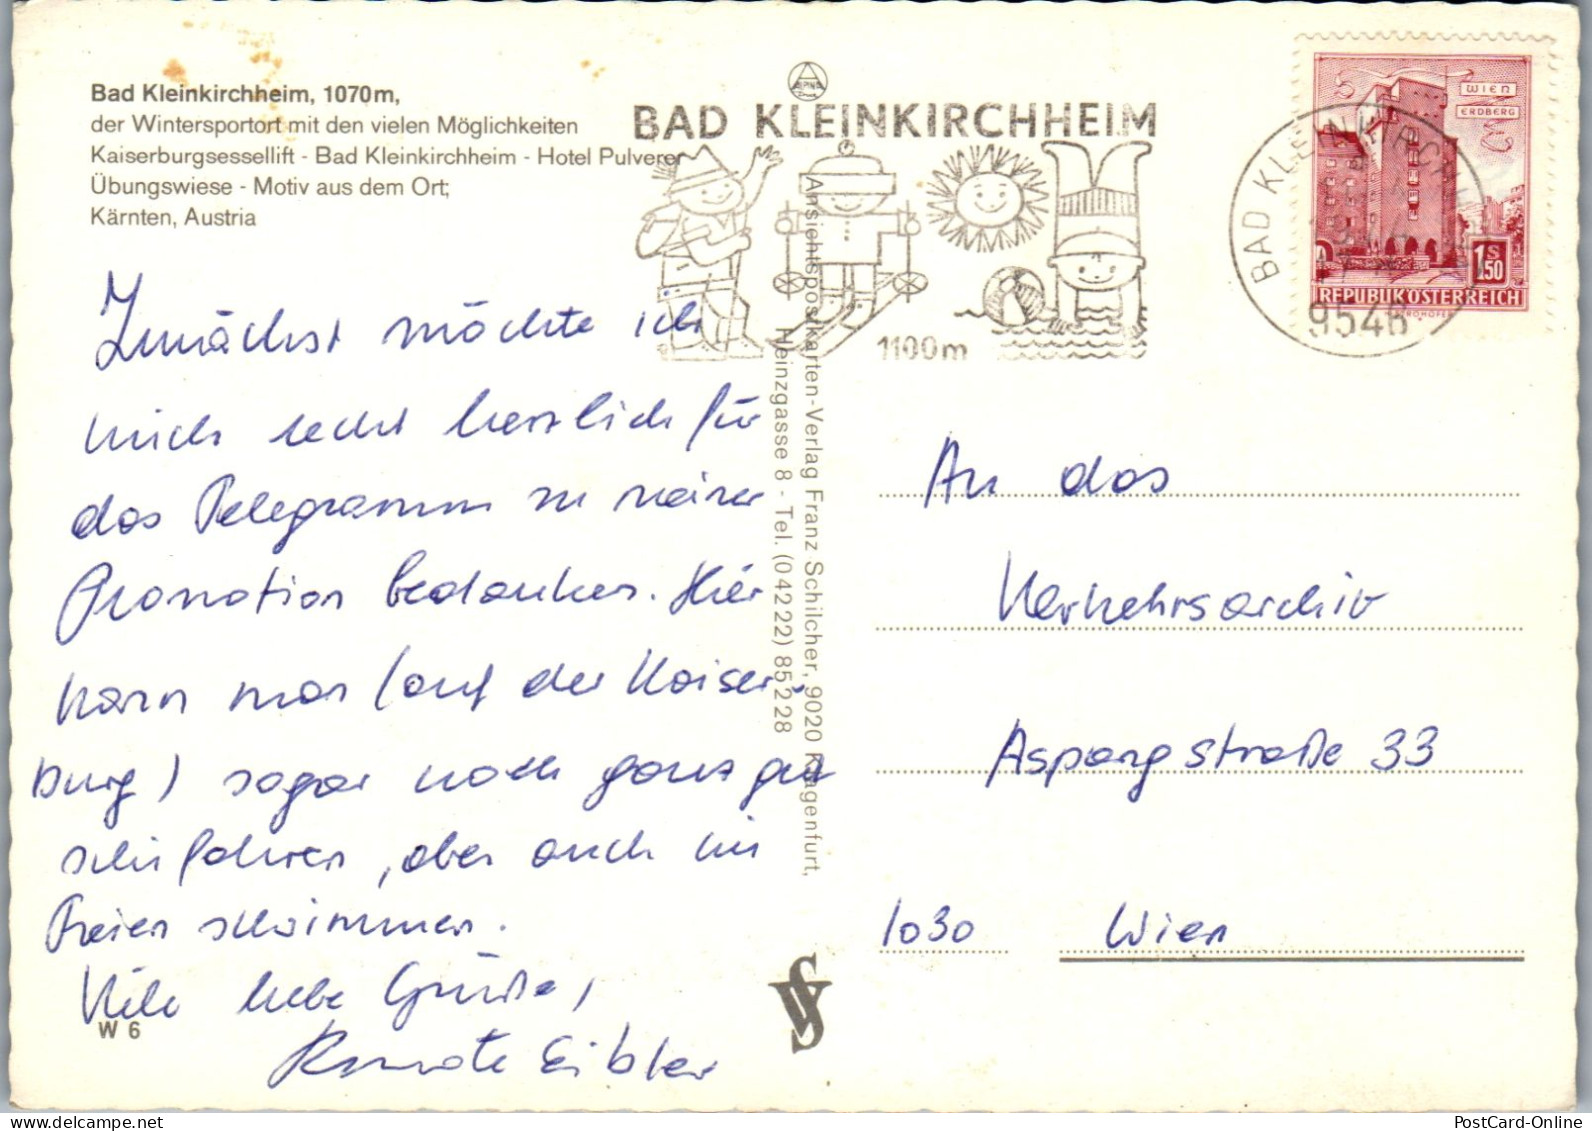 Bad Kleinkirchheim, 1070m,
der Wintersportort mit den vielen Möglichkeiten
Kaiserburgsessellift - Bad Kleinkirchheim - Hotel Pulverer
Übungswiese - Motiv aus dem Ort;
Kärnten, Austria
BAD KLEINKIRCHHEIM
1100m
WIEN
ERDBERG
1.50
S
REPUBLIK ÖSTERREICH
BAD KLEINKIRCHHEIM
9546
Zunächst möchte ich
mich recht herzlich für
das Telegramm zu meiner
Promotion bedanken. Hier
kann man (auf der Kaiser-
burg) sogar noch ganz gut
schifahren, aber auch im
Freien schwimmen.
Viele liebe Grüße,
Renate Eibler
W 6
Ansichtspostkarten-Verlag Franz Schilcher, 9020 Klagenfurt,
Heinzgasse 8 - Tel. (04222) 85228
An das
Verkehrsarchiv
Aspangstraße 33
1030 Wien
PostCard-Online